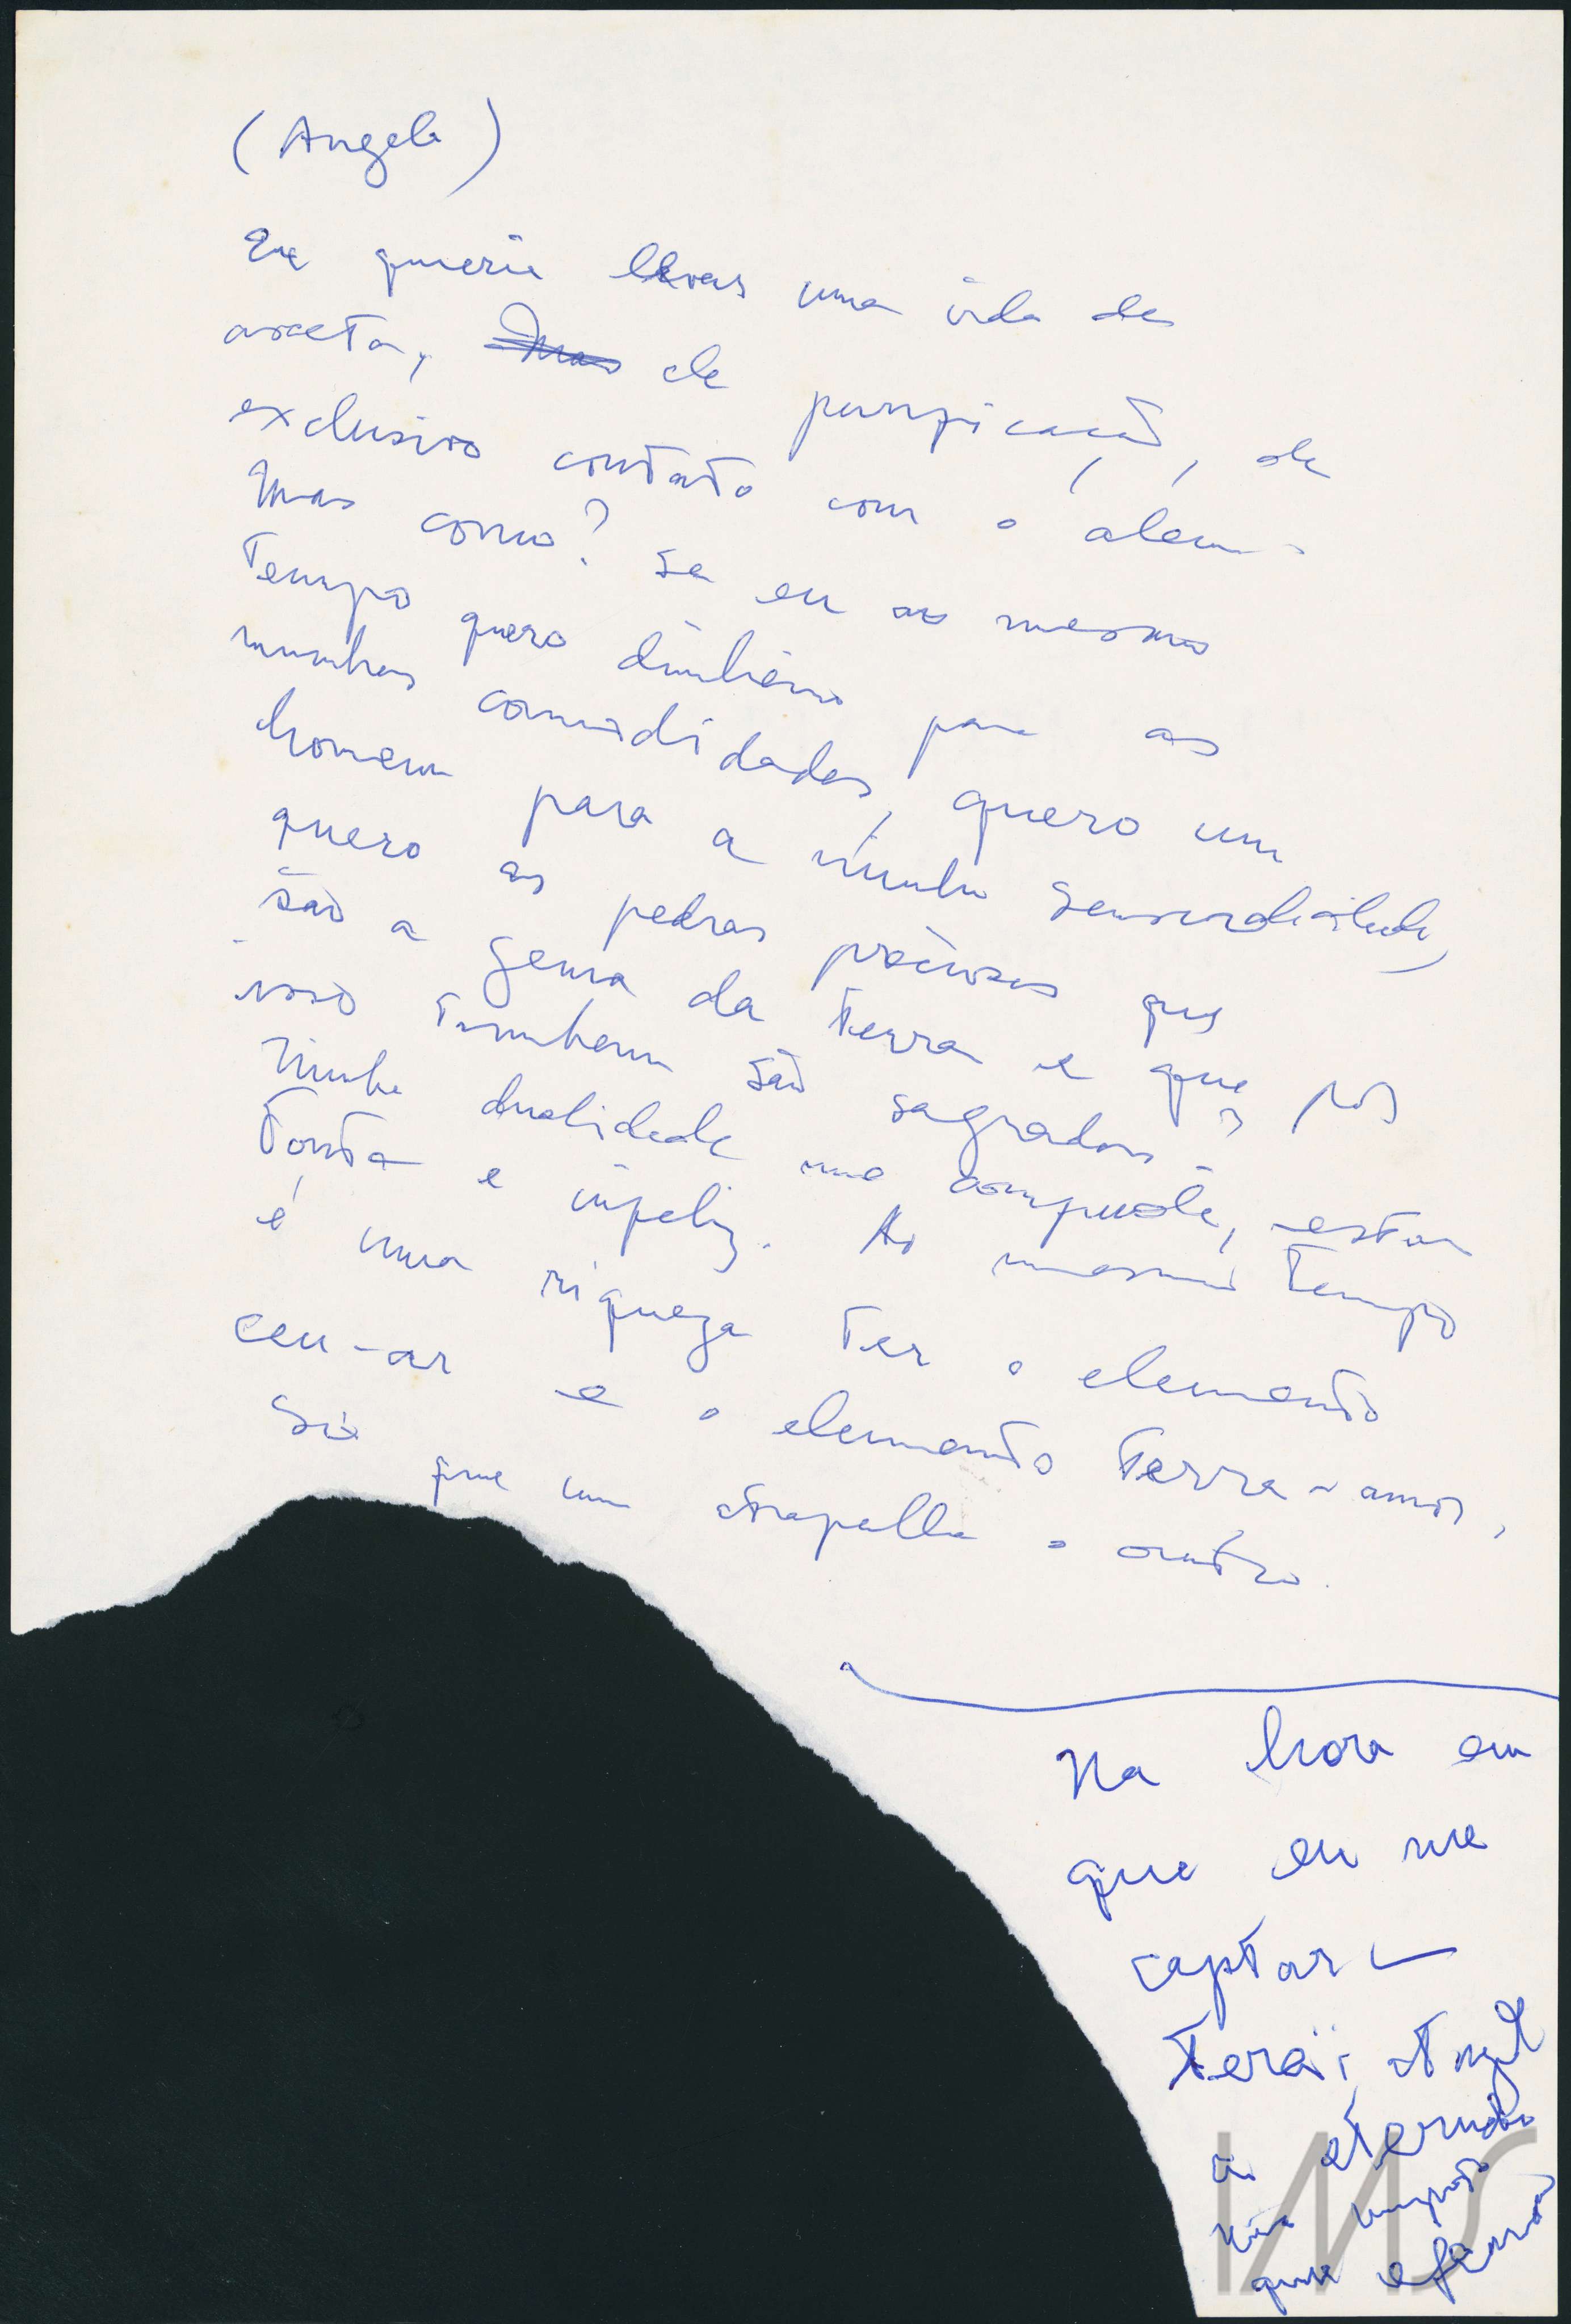 (Angela)
Eu queria levar uma vida de
asceta, de purificação, de
exclusivo contato com o alem.
Mas como? se eu ao mesmo
tempo quero dinheiro para as
minhas comodidades, quero um
homem para a minha sensualidade,
quero as pedras preciosas que
são a gema da terra e que, por
isso tambem são sagrados?
Minha dualidade me, estou
tonta e infeliz. Ao mesmo tempo
é uma riqueza ter o elemento
ceu-ar e o elemento terra-amor,
Sem que um atrapalhe o outro.
Na hora em
que eu me
captar —
terei
a
que
IMS